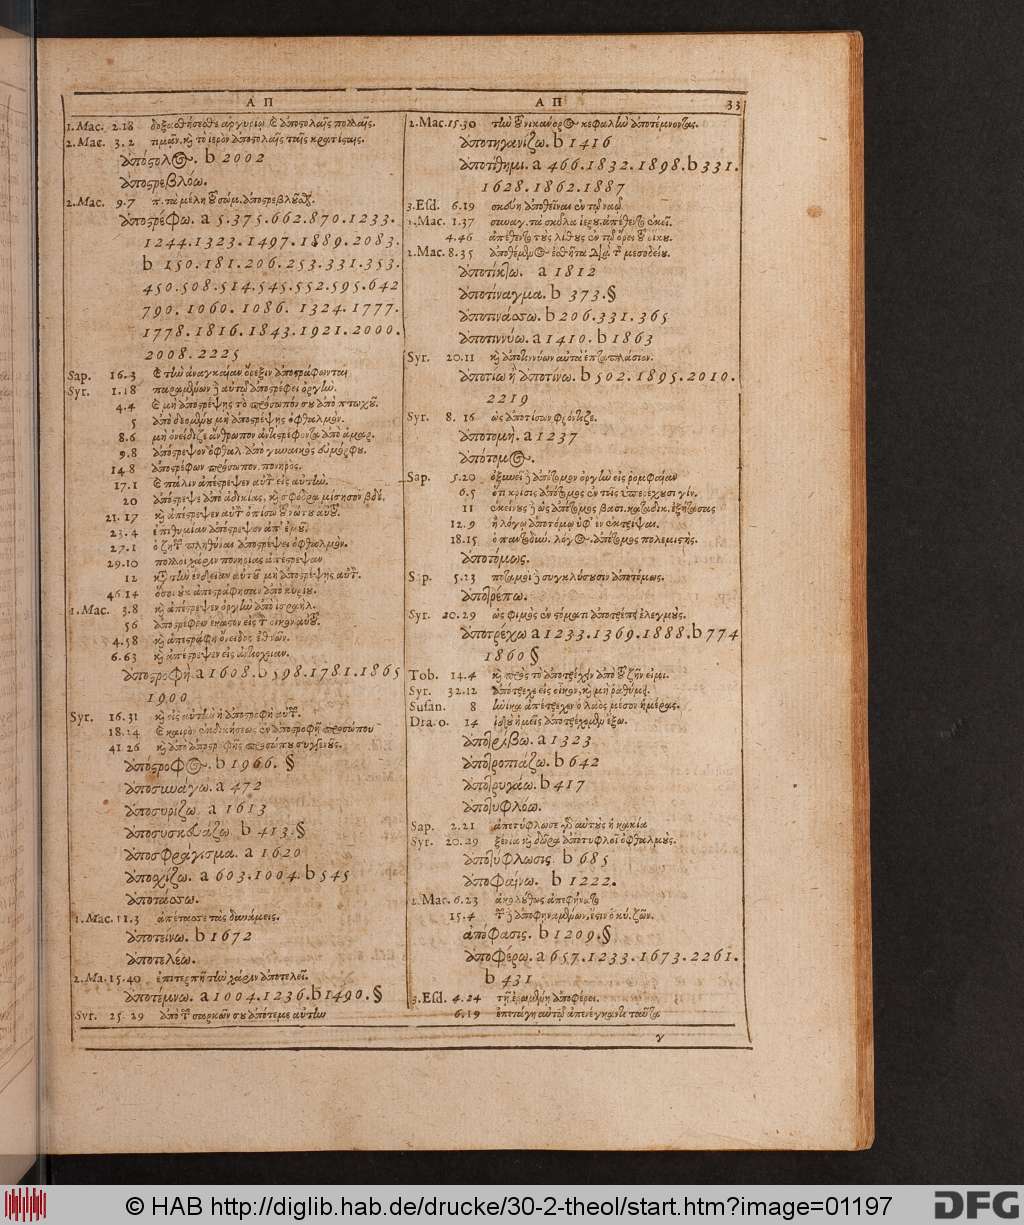 Α Π
Α Π 33
1. Mac. 2.18 δοξασθήσεσθε ἀργυρίῳ ἀποστολαῖς πολλαῖς.
2. Mac. 3.2 τιμᾶν, κ τὸ ἱερὸν ἀποστολαῖς ταῖς κρατίσταις.
ἀπόστολος. b 2002
ἀποστρεβλόω.
2. Mac. 9.7 π. τὰ μέλη
ἀποστρέφω. a 5.375.662.870.1233.
1244.1323.1497.1889.2083.
b 150.181.206.253.331.353.
450.508.514.545.552.595.642
790.1060.1086.1324.1777.
1778.1816.1843.1921.2000.
2008.2225
Sap. 16.3 τὴν ἀναγκαίαν ὄρεξιν ἀποστρέφωνται
Syr. 1.18 ἀποστρέφει ὀργήν.
4.4 μὴ ἀποστρέψῃς τὸ πρόσωπόν σου ἀπὸ πτωχοῦ.
5 ἀπὸ δεομένου μὴ ἀποστρέψῃς ὀφθαλμόν.
8.6 μὴ ὀνείδιζε ἄνθρωπον ἀποστρέφοντα ἀπὸ ἁμαρ.
9.8 ἀπόστρεψον ὀφθαλ. ἀπὸ γυναικὸς εὐμόρφου.
14.8 ἀποστρέφων πρόσωπον. πονηρός.
17.1 πάλιν ἀπέστρεψεν αὐτ εἰς αὐτήν.
20 ἀπόστρεφε ἀπὸ ἀδικίας, κ σφόδρα μίσησον βδέ.
21.17 κ ἀπέστρεψεν αὐτ ὀπίσω
23.4 ἐπιθυμίαν ἀπόστρεψον ἀπ' ἐμοῦ.
27.1 ὁ ζητ πληθῦναι ἀποστρέψει ὀφθαλμόν.
29.10 πολλοὶ χάριν πονηρίας ἀπέστρεψαν
12 κ τὴν ἔνδειαν αὐτοῦ μὴ ἀποστρέψῃς αὐτ.
46.14 ὅσοι οὐκ ἀπεστράφησαν ἀπὸ κυρίου.
1. Mac. 3.8 κ ἀπέστρεψεν ὀργὴν ἀπὸ ἰσραήλ.
56 ἀποστρέφειν ἕκαστον εἰς τ οἶκον αὐτ.
4.58 κ ἀπεστράφη ὄνειδος ἐθνῶν.
6.63 κ ἀπέστρεψεν εἰς ἀντιόχειαν.
ἀποστροφή. a 1608. b 598.1781.1865
1900
Syr. 16.31 κ εἰς αὐτὴν ἡ ἀποστροφὴ αὐτ.
18.24 καιρὸν ἐκδικήσεως ἐν ἀποστροφῇ προσώπου
41.26 κ ἀπὸ ἀποστροφῆς προσώπου συγγενοῦς.
ἀπόστροφος. b 1966. §
ἀποσυνάγω. a 472
ἀποσυρίζω. a 1613
ἀποσυσκευάζω b 413. §
ἀποσφράγισμα. a 1620
ἀποσχίζω. a 603.1004. b 545
ἀποτάσσω.
1. Mac. 11.3 ἀπέτασσε τὰς δυνάμεις.
ἀποτείνω. b 1672
ἀποτελέω.
2. Ma. 15.40 ἐπιτερπῆ τὴν χάριν ἀποτελεῖ.
ἀποτέμνω. a 1004.1236. b 1490. §
Syr. 25 29 ἀπὸ τ σαρκῶν σου ἀπότεμε αὐτήν
2. Mac. 15.30 τὴν νικάνορος κεφαλὴν ἀποτέμνοντας.
ἀποτηγανίζω. b 1416
ἀποτίθημι. a 466.1832.1898. b 331.
1628.1862.1887
3. Esd. 6.19 σκεύη ἀποθεῖναι ἐν τῷ ναῷ.
1. Mac. 1.37 συναγ. τὰ σκῦλα ἱερου. ἀπέθεντο ἐκεῖ.
4.46 ἀπέθεντο τοὺς λίθους ἐν τῷ ὄρει οἴκου.
2. Mac. 8.35 ἀποθέμενος ἐσθῆτα διὰ τ μεσογείου.
ἀποτίκτω. a 1812
ἀποτίναγμα. b 373. §
ἀποτινάσσω. b 206.331.365
ἀποτιννύω. a 1410. b 1863
Syr. 20.11 κ ἀποτιννύων αὐτὰ ἑπταπλάσιον.
ἀποτίω ἢ ἀποτίνω. b 502.1895.2010.
2219
Syr. 8.16 ὡς ἀποτίσων φρόντιζε.
ἀποτομή. a 1237
ἀπότομος.
Sap. 5.20 ὀξυνεῖ ἀπότομον ὀργὴν εἰς ῥομφαίαν
6.5 ὅτι κρίσις ἀπότομος ἐν τοῖς ὑπερέχουσι γίν.
11 ἐκείνους ὡς ἀπότομος βασι. καταδικ. ἐξήτασας
12.9 ἢ λόγῳ ἀποτόμῳ ὑφ' ἓν ἐκτρῖψαι.
18.15 ὁ παντοδύν. λόγος ἀπότομος πολεμιστής.
ἀποτόμως.
Sap. 5.23 ποταμοὶ συγκλύσουσιν ἀποτόμως.
ἀποτρέπω.
Syr. 20.29 ὡς φιμὸς ἐν στόματι ἀποτρέπει ἐλεγμούς.
ἀποτρέχω a 1233.1369.1888. b 774
1860 §
Tob. 14.4 κ πρὸς τὸ ἀποτρέχειν ἀπὸ ζῆν εἰμι.
Syr. 32.12 ἀπότρεχε εἰς οἶκον, κ μὴ ῥαθύμει.
Susan. 8 ἡνίκα ἀπέτρεχεν ὁ λαὸς μέσον ἡμέρας.
Draco. 14 ἰδοὺ ἡμεῖς ἀποτρέχομεν ἔξω.
ἀποτρίβω. a 1323
ἀποτροπιάζω. b 642
ἀποτρυγάω. b 417
ἀποτυφλόω.
Sap. 2.21 ἀπετύφλωσε αὐτοὺς ἡ κακία
Syr. 20.29 ξένια κ δῶρα ἀποτυφλοῖ ὀφθαλμούς.
ἀποτύφλωσις. b 685
ἀποφαίνω. b 1222.
2. Mac. 6.23 ἀκολούθως ἀπεφήνατο
15.4 τ ἀποφηναμένων, ἔστιν ὁ κύ. ζῶν.
ἀπόφασις. b 1209. §
ἀποφέρω. a 657.1233.1673.2261.
b 431
3. Esd. 4.24 τῇ ἐρωμένῃ ἀποφέρει.
6.19 ἐπετάγη αὐτῷ ἀπενέγκαντα ταῦτα
γ
© HAB http://diglib.hab.de/drucke/30-2-theol/start.htm?image=01197
DFG